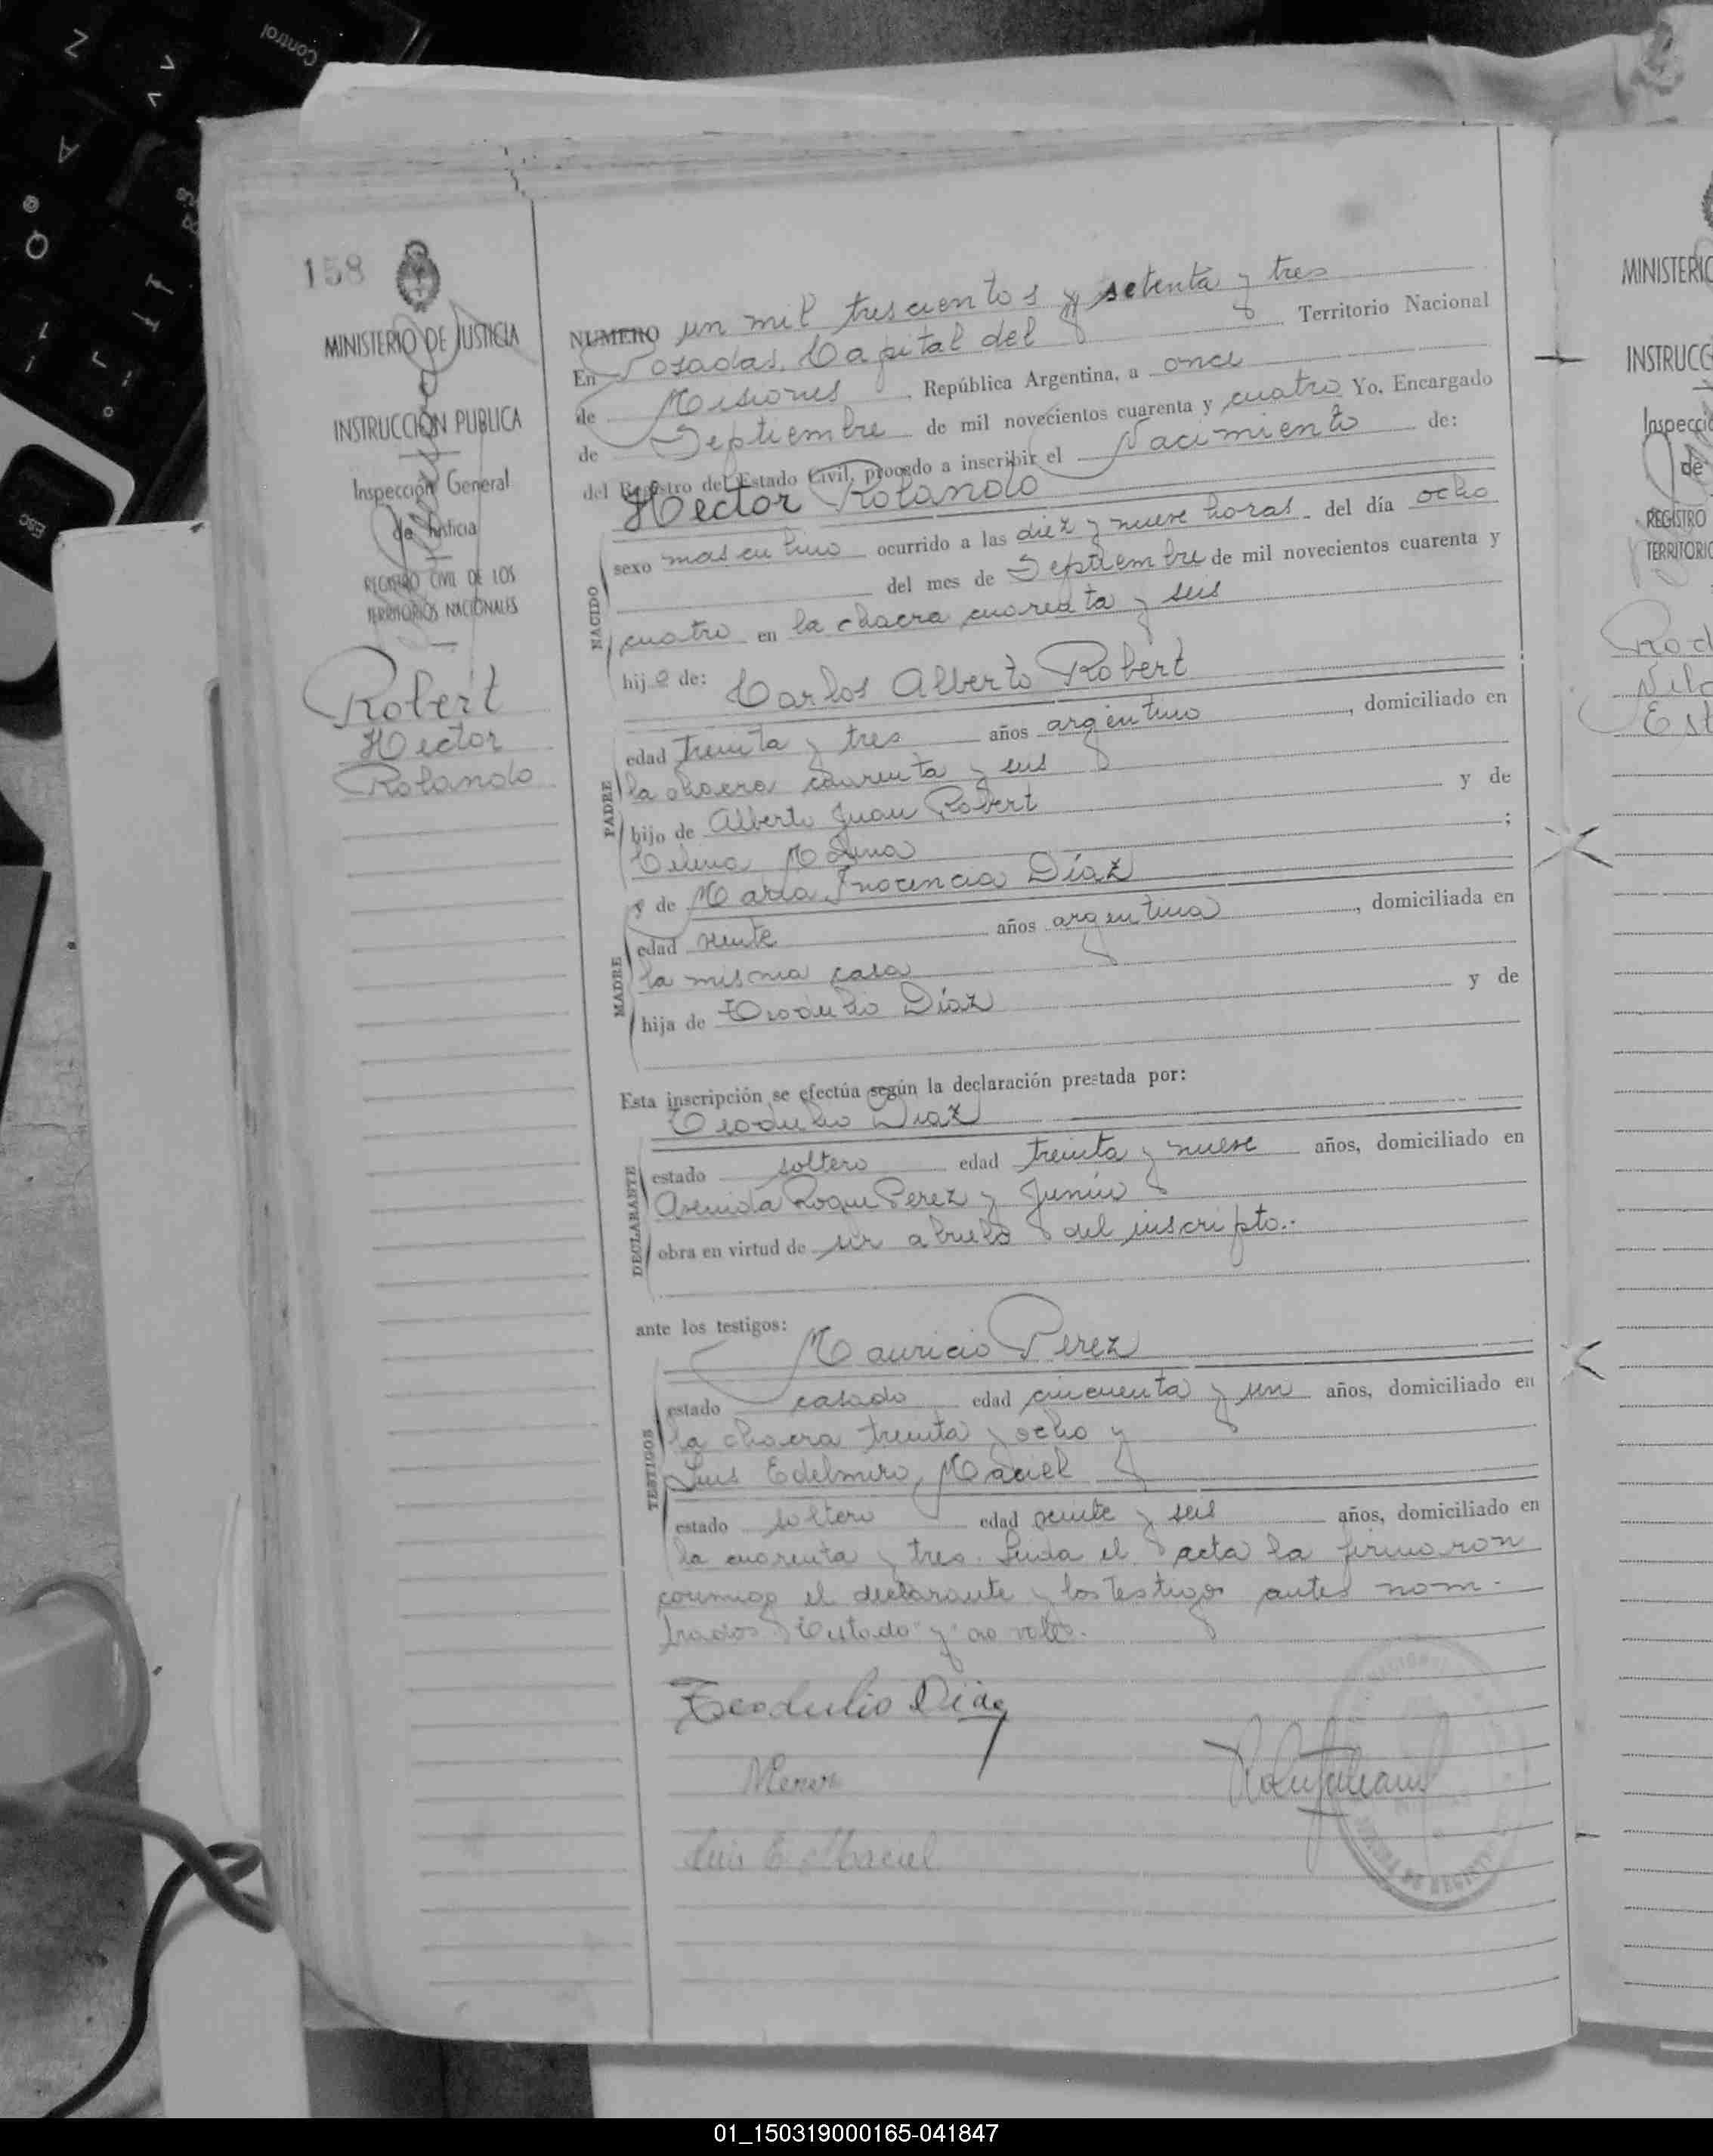 158
MINISTERIO DE JUSTICIA
INSTRUCCIÓN PUBLICA
Inspección General
de Justicia
REGISTRO CIVIL DE LOS
TERRITORIOS NACIONALES
Robert
Hector
Rolando
NUMERO un mil trescientos y setenta y tres
En Posadas, Capital del Territorio Nacional
de Misiones, República Argentina, a once
de Septiembre de mil novecientos cuarenta y cuatro Yo, Encargado
del Registro del Estado Civil, procedo a inscribir el Nacimiento de:
Hector Rolando
NACIDO
sexo masculino ocurrido a las diez y nueve horas del día ocho
del mes de Septiembre de mil novecientos cuarenta y
cuatro en la chacra cuarenta y seis
hijo de: Carlos Alberto Robert
PADRE
edad treinta y tres años argentino, domiciliado en
la chacra cuarenta y seis
hijo de Alberto Juan Robert y de
Molina;
y de María Inocencia Díaz
MADRE
edad veinte años argentina, domiciliada en
la misma casa
hija de Teodulio Díaz y de
Esta inscripción se efectúa según la declaración prestada por:
Teodulio Diaz
DECLARANTE
estado soltero edad treinta y nueve años, domiciliado en
Avenida Roque Perez y Junín
obra en virtud de ser abuelo del inscripto.-
ante los testigos:
Mauricio Perez
TESTIGOS
estado casado edad cincuenta y un años, domiciliado en
la chacra treinta y ocho y
Luis Edelmiro Maciel
estado soltero edad veinte y seis años, domiciliado en
la cuarenta y tres. Leida el acta la firmaron
conmigo el declarante y los testigos antes nom-
brados Testado y no vale.
Teodulio Diaz
Luis E. Maciel
MINISTERIO
INSTRUCC
Inspecció
de
REGISTRO
TERRITORIO
Rod
Est
01_150319000165-041847